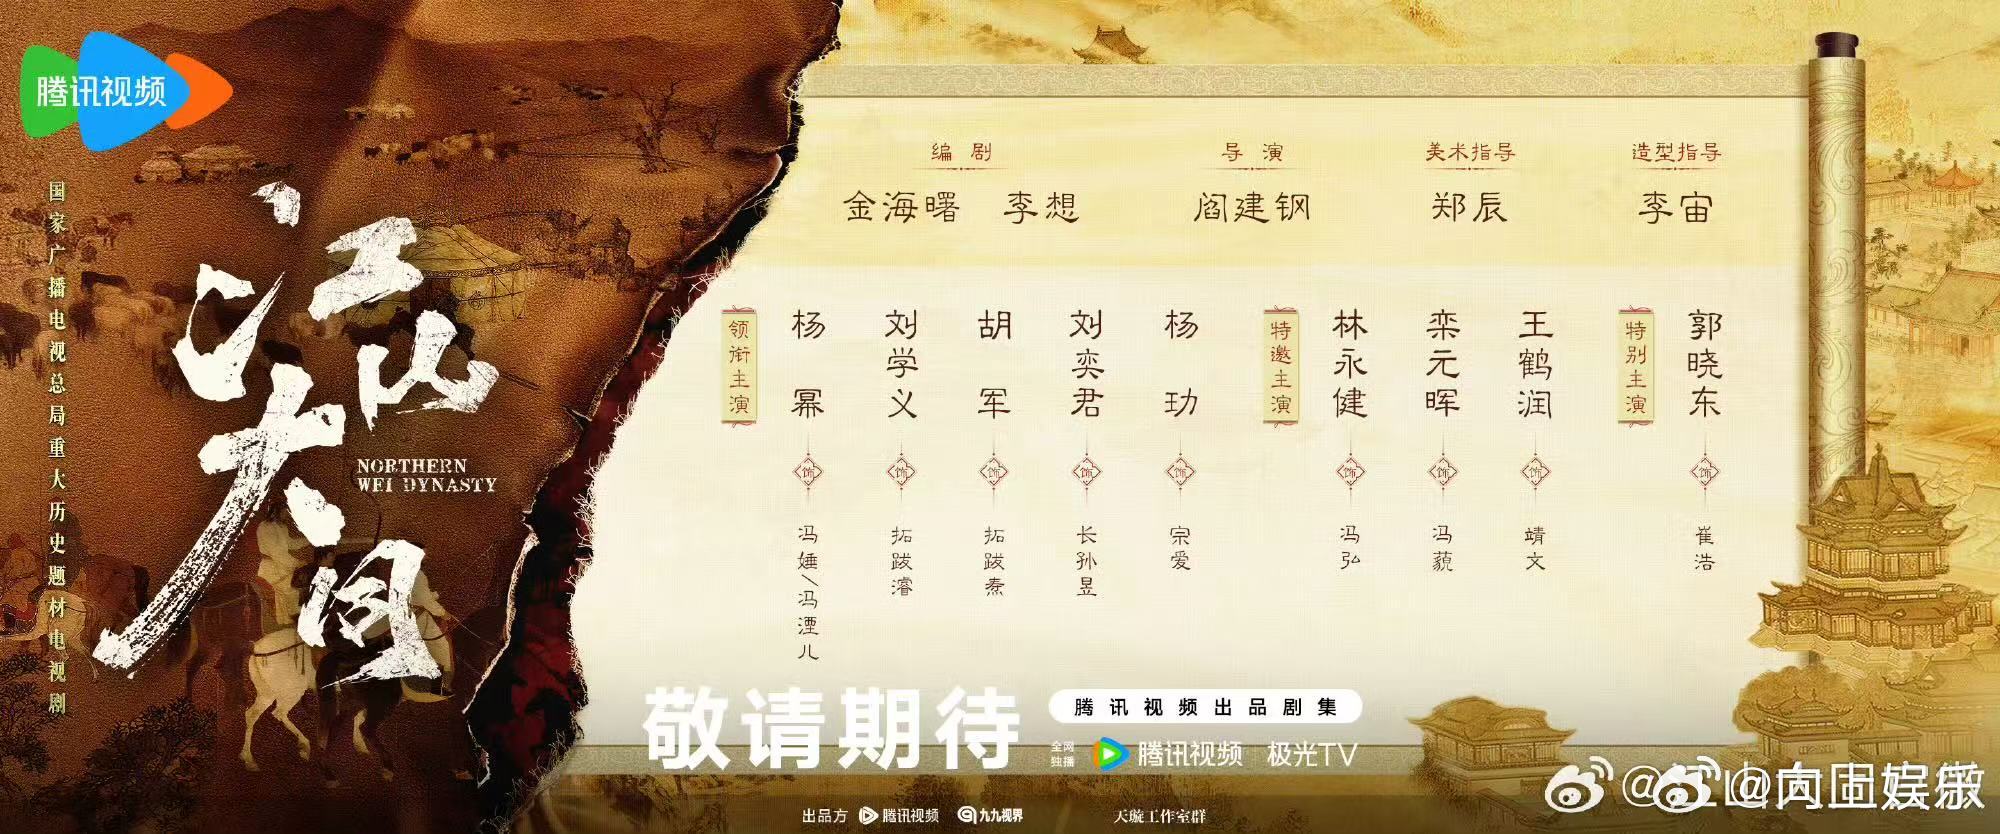 腾讯视频
国家广播电视总局重大历史题材电视剧
江山大同
NORTHERN
WEI DYNASTY
编剧
金海曙 李想
导演
阎建钢
美术指导
郑辰
造型指导
李宙
领衔主演
杨幂
饰
冯娷/冯湮儿
刘学义
饰
拓跋濬
胡军
饰
拓跋焘
刘奕君
饰
长孙昱
杨玏
饰
宗爱
特邀主演
林永健
饰
冯弘
栾元晖
饰
冯藐
王鹤润
饰
靖文
特别主演
郭晓东
饰
崔浩
敬请期待
腾讯视频出品剧集
全网独播
腾讯视频 极光TV
出品方 腾讯视频 九九视界 天璇工作室群